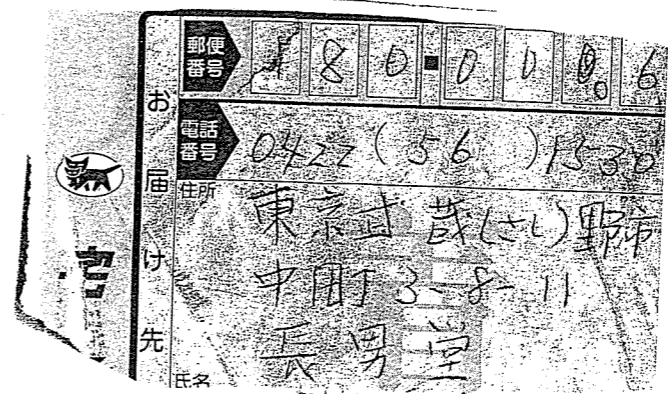 郵便番号 180-0006
電話番号 0422(56)1530
お届け先
住所
東京武蔵(さし)野市
中町3-8-11
長男堂
氏名